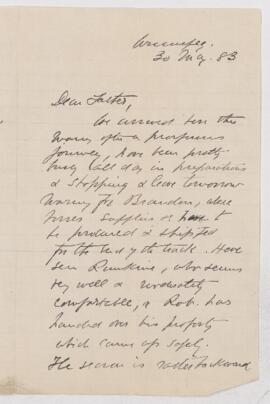 Winnipeg.
30 May. 83
Dear Father,
We arrived here this
morng after a prosperous
journey, have been pretty
busy all day in preparations
& shopping & leave tomorrow
morng for Brandon, where
horses supplies & have to
be procured & shipped
for the end of the track. Have
seen Rankine, who seems
very well & moderately
comfortable, & Rob. has
handed over his property
which came up safely.
The season is rather backward